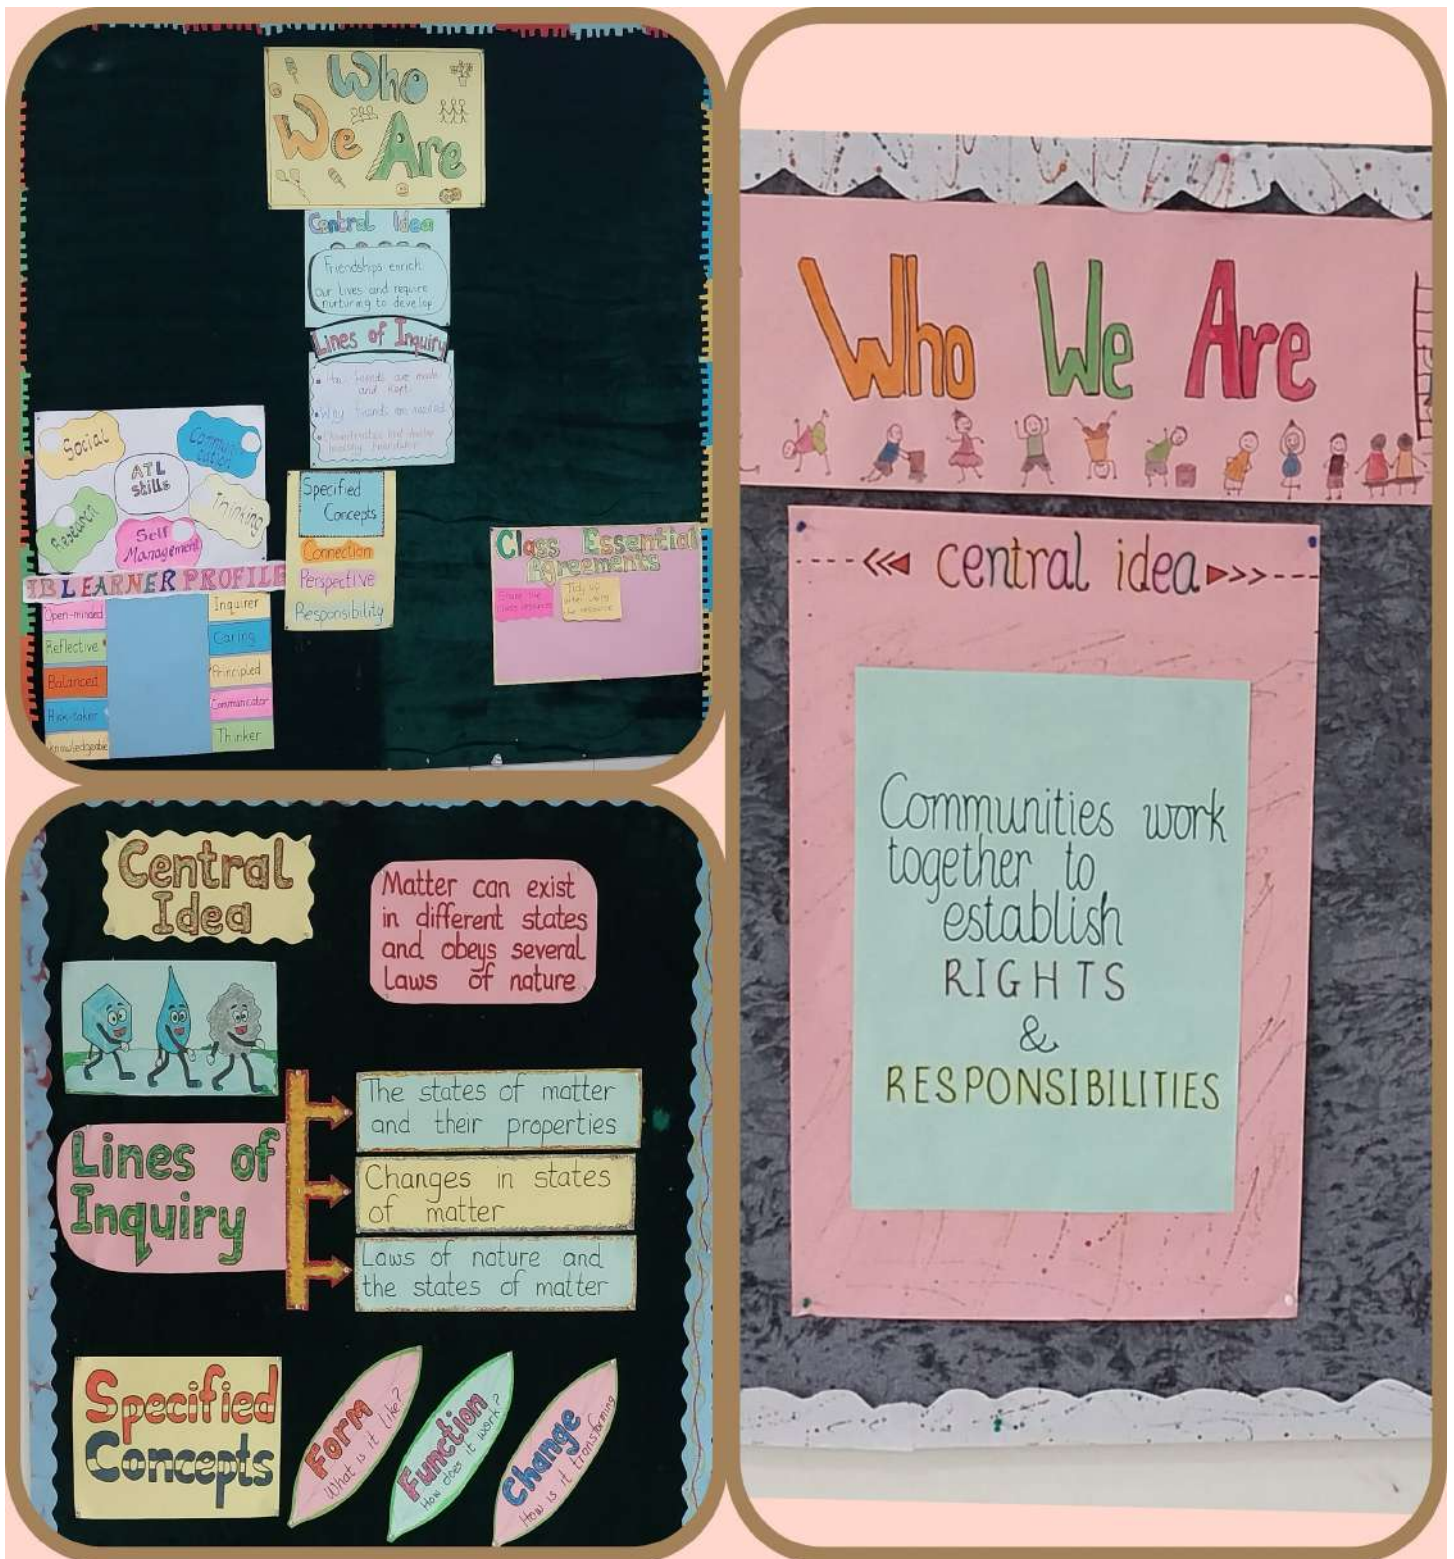 Who
We Are
Central Idea
Friendships enrich
our lives and require
nurturing to develop
Lines of Inquiry
How friends are made
and kept
Why friends are needed
Social
Communi
cation
ATL
skills
Research
Thinking
Self
Management
IB LEARNER PROFILE
Open-minded
Reflective
Balanced
Risk-taker
Knowledgeable
Inquirer
Caring
Principled
Communicator
Thinker
Specified
Concepts
Connection
Perspective
Responsibility
Class Essential
Agreements
Share the
class resources
Tidy up
after using
the resource
Central
Idea
Matter can exist
in different states
and obeys several
laws of nature
Lines of
Inquiry
The states of matter
and their properties
Changes in states
of matter
Laws of nature and
the states of matter
Specified
Concepts
Form
What is it like?
Function
How does it work?
Change
How is it transforming
Who We Are
central idea
Communities work
together to
establish
RIGHTS
&
RESPONSIBILITIES